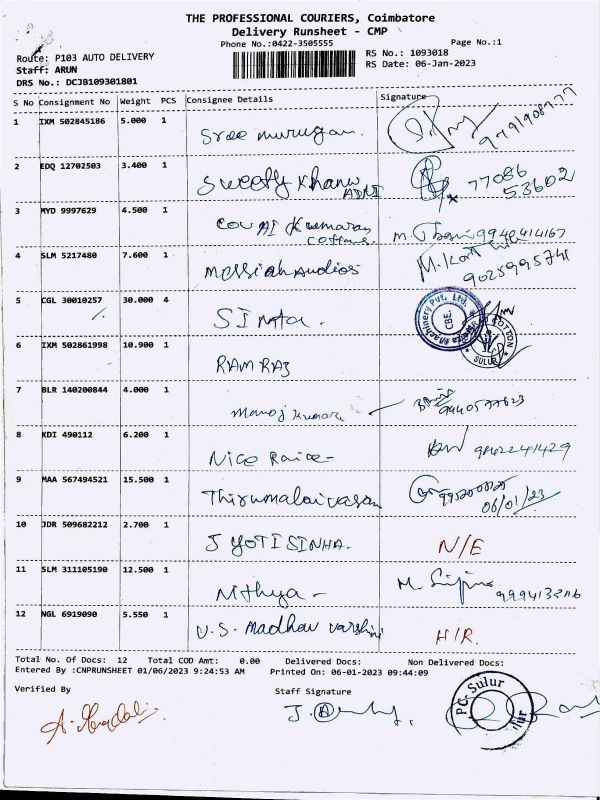 THE PROFESSIONAL COURIERS, Coimbatore
Delivery Runsheet - CMP
Phone No.:0422-3505555
Page No.:1
Route: P103 AUTO DELIVERY
RS No.: 1093018
Staff: ARUN
RS Date: 06-Jan-2023
DRS No.: DCJB109301801
S No Consignment No Weight PCS Consignee Details Signature
1 IXM 502845186 5.000 1 Sree murugan.
2 EDQ 12702503 3.400 1 Sweety Khanw 77086
53602
3 MYD 9997629 4.500 1 COVAI Kumaran 9940414167
4 SLM 5217480 7.600 1 Messiah Audios 9025995741
5 CGL 30010257 30.000 4 SIMTA. Machinery Pvt. Ltd. CBE. COTTON SULUR
6 IXM 502861998 10.900 1 RAMRAJ
7 BLR 140200844 4.000 1 Manoj Kumara
8 KDI 490112 6.200 1 Nice 9842241429
9 MAA 567494521 15.500 1 Thirumalaivasan
06/01/23
10 JDR 509682212 2.700 1 JYOTISINHA. N/E
11 SLM 311105190 12.500 1 Nithya -
12 NGL 6919090 5.550 1 U.S. Madhav varshini H/R.
Total No. Of Docs: 12 Total COD Amt: 0.00 Delivered Docs: Non Delivered Docs:
Entered By :CNPRUNSHEET 01/06/2023 9:24:53 AM Printed On: 06-01-2023 09:44:09
Verified By Staff Signature
PC- Sulur